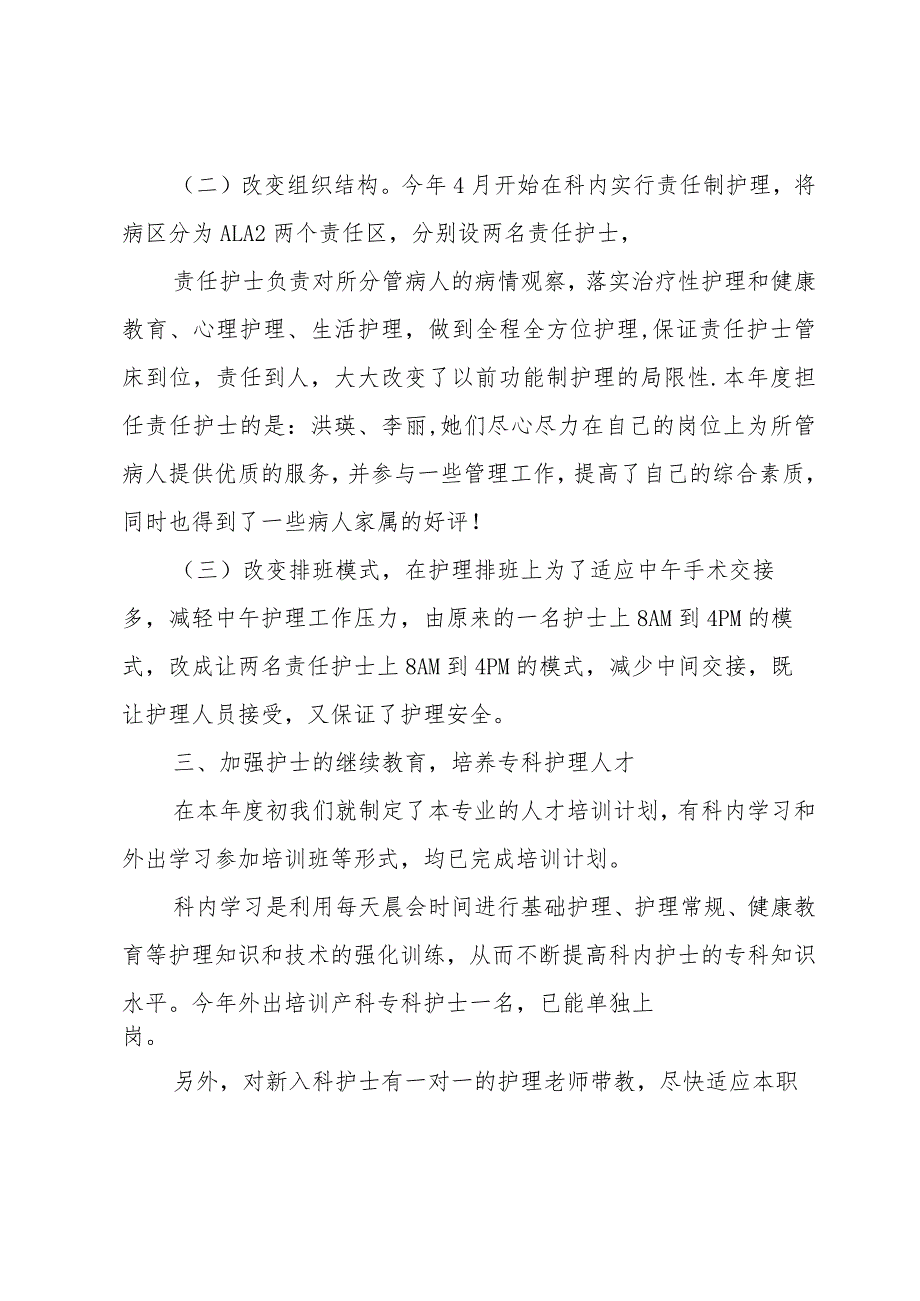 （二）改变组织结构。今年4月开始在科内实行责任制护理，将
病区分为ALA2两个责任区，分别设两名责任护士，
责任护士负责对所分管病人的病情观察，落实治疗性护理和健康
教育、心理护理、生活护理，做到全程全方位护理,保证责任护士管
床到位，责任到人，大大改变了以前功能制护理的局限性.本年度担
任责任护士的是：洪瑛、李丽,她们尽心尽力在自己的岗位上为所管
病人提供优质的服务，并参与一些管理工作，提高了自己的综合素质，
同时也得到了一些病人家属的好评！
（三）改变排班模式，在护理排班上为了适应中午手术交接
多，减轻中午护理工作压力，由原来的一名护士上8AM到4PM的模
式，改成让两名责任护士上8AM到4PM的模式，减少中间交接，既
让护理人员接受，又保证了护理安全。
三、加强护士的继续教育，培养专科护理人才
在本年度初我们就制定了本专业的人才培训计划，有科内学习和
外出学习参加培训班等形式，均已完成培训计划。
科内学习是利用每天晨会时间进行基础护理、护理常规、健康教
育等护理知识和技术的强化训练，从而不断提高科内护士的专科知识
水平。今年外出培训产科专科护士一名，已能单独上
岗。
另外，对新入科护士有一对一的护理老师带教，尽快适应本职